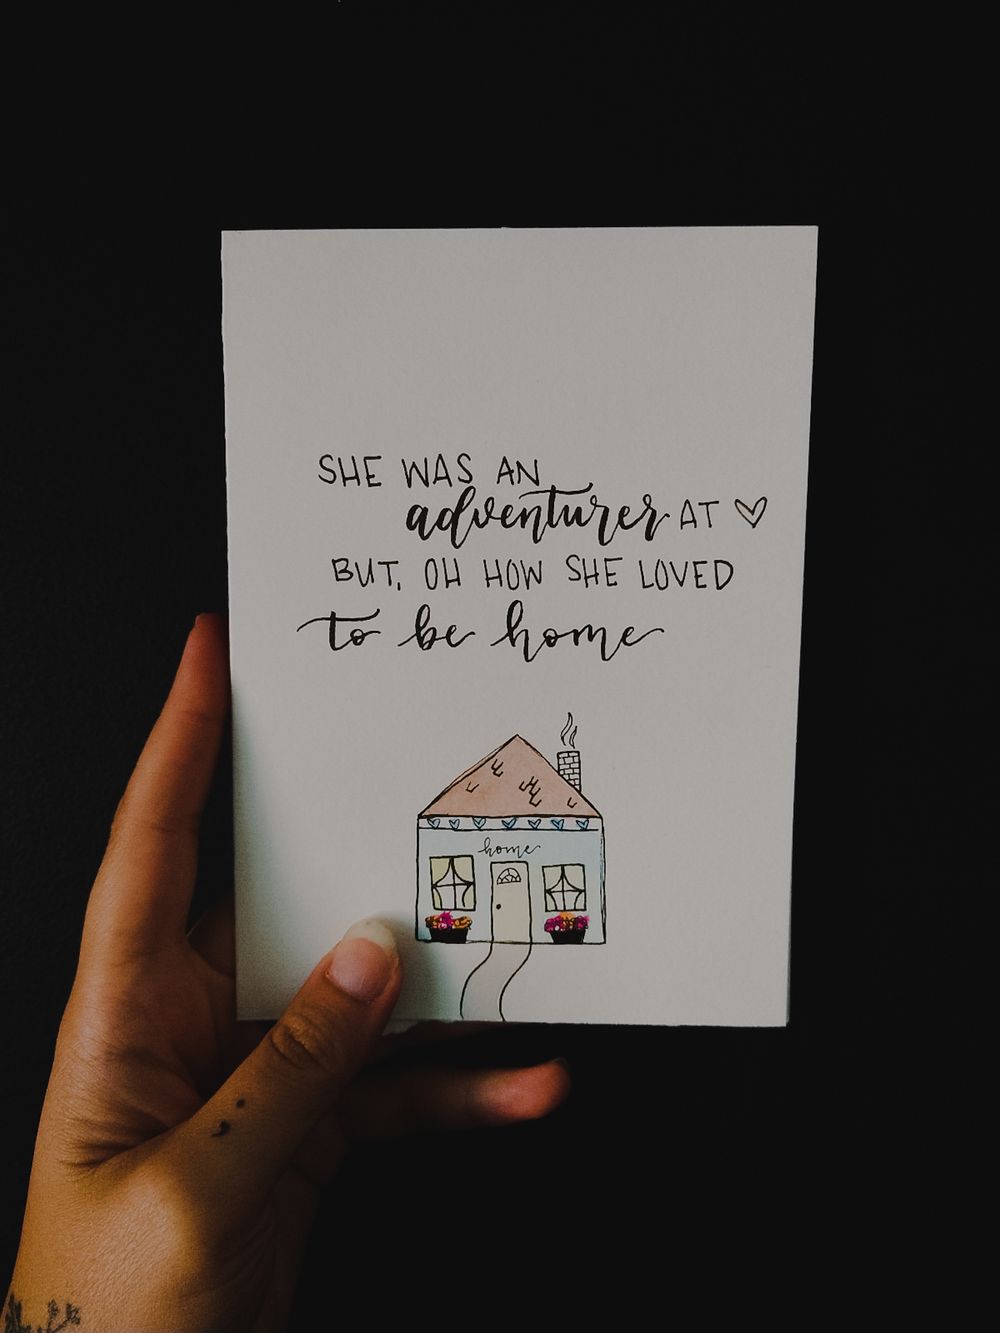 SHE WAS AN
adventurer AT ♡
BUT, OH HOW SHE LOVED
to be home
home